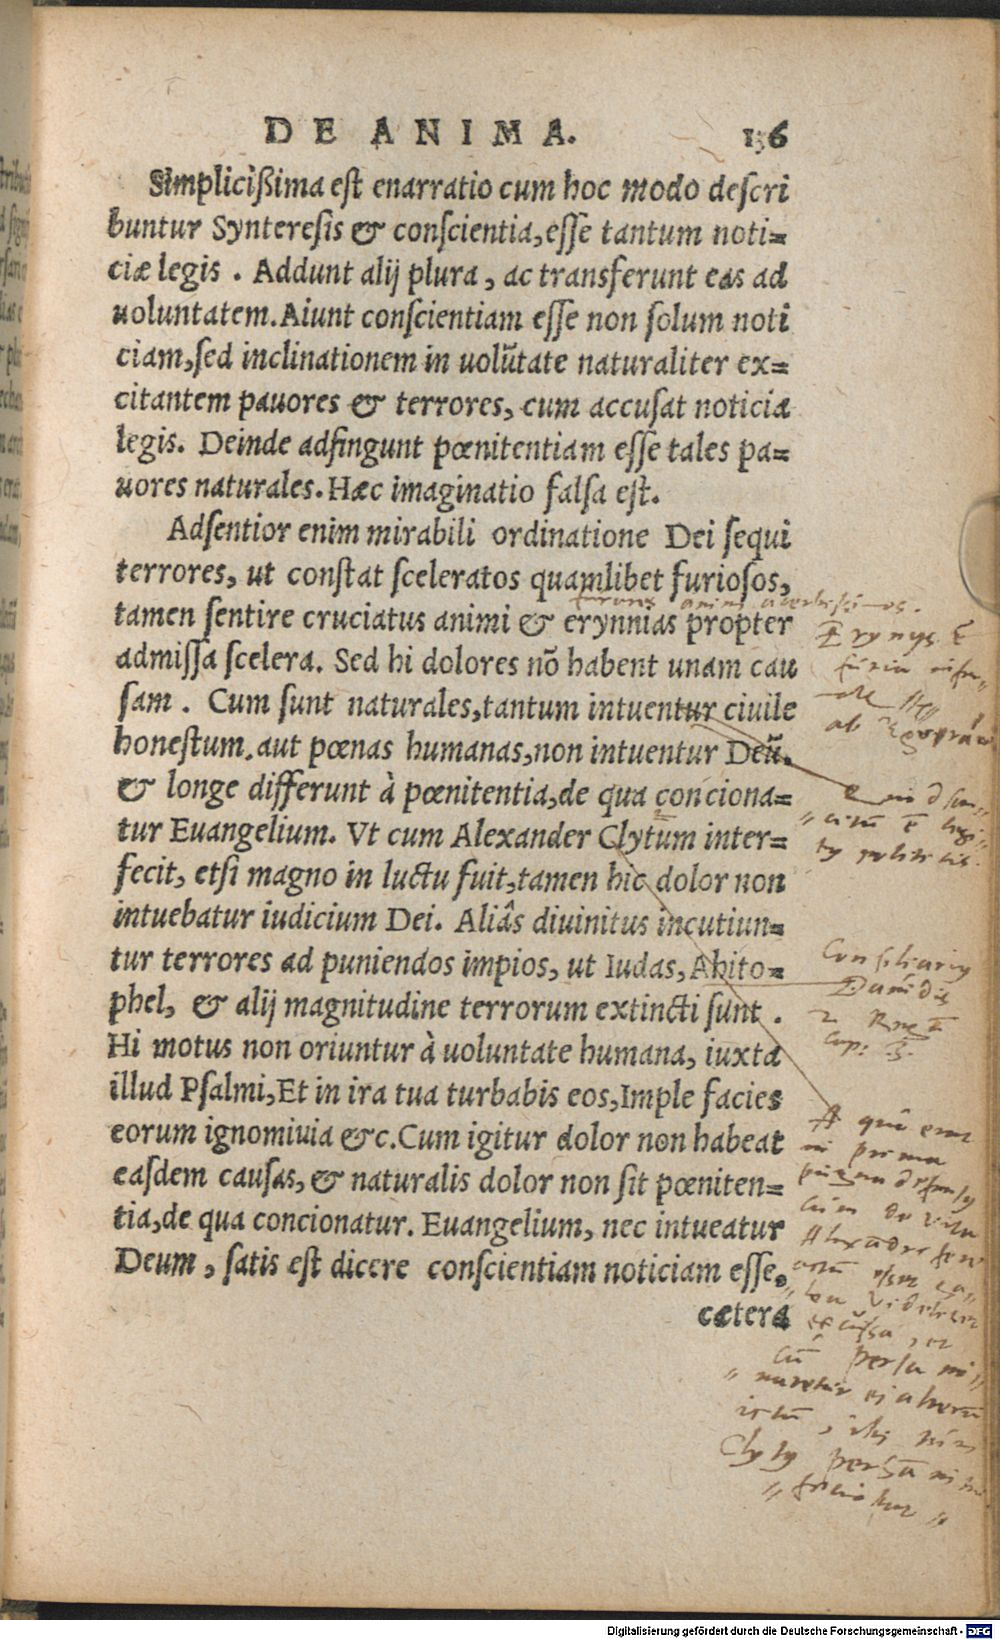 DE ANIMA. 136
Simplicißima est enarratio cum hoc modo descri
buntur Synteresis & conscientia, esse tantum noti=
ciæ legis . Addunt alij plura, ac transferunt eas ad
uoluntatem. Aiunt conscientiam esse non solum noti
ciam, sed inclinationem in uolūtate naturaliter ex=
citantem pauores & terrores, cum accusat noticia
legis. Deinde adfingunt pœnitentiam esse tales pa=
uores naturales. Hæc imaginatio falsa est.
Adsentior enim mirabili ordinatione Dei sequi
terrores, ut constat sceleratos quamlibet furiosos,
tamen sentire cruciatus animi & erynnias propter
admissa scelera. Sed hi dolores nō habent unam cau
sam . Cum sunt naturales, tantum intuentur ciuile
honestum, aut pœnas humanas, non intuentur Deū.
& longe differunt à pœnitentia, de qua conciona=
tur Euangelium. Vt cum Alexander Clytum inter=
fecit, etsi magno in luctu fuit, tamen hic dolor non
intuebatur iudicium Dei. Aliâs diuinitus incutiun=
tur terrores ad puniendos impios, ut Iudas, Ahito=
phel, & alij magnitudine terrorum extincti sunt .
Hi motus non oriuntur à uoluntate humana, iuxta
illud Psalmi, Et in ira tua turbabis eos, Imple facies
eorum ignomiuia &c. Cum igitur dolor non habeat
easdem causas, & naturalis dolor non sit pœniten=
tia, de qua concionatur. Euangelium, nec intueatur
Deum, satis est dicere conscientiam noticiam esse.
cætera
furores animi
Erynys ē
furia
ab
politicis
Consiliariy
Dauidis
2 Reg
cap:
A quī erat
in prima
pugna
cum de vita
videlicet
excussa, et
cū persa
ictū, ibi
Clyty persā